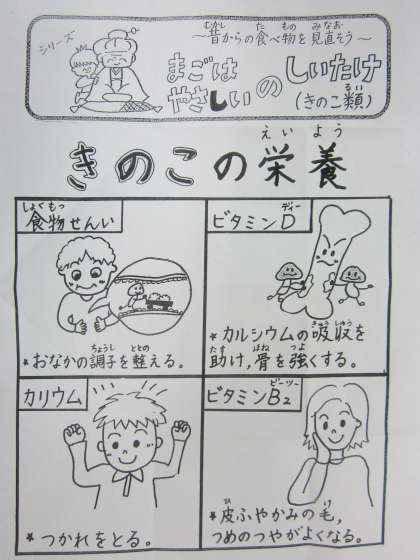 シリーズ
～昔からの食べ物を見直そう～
まごは
やさしいの しいたけ
(きのこ類)
きのこの栄養
食物せんい
*おなかの調子を整える。
ビタミンD
*カルシウムの吸収を
助け,骨を強くする。
カリウム
*つかれをとる。
ビタミンB₂
*皮ふやかみの毛,
つめのつやがよくなる。